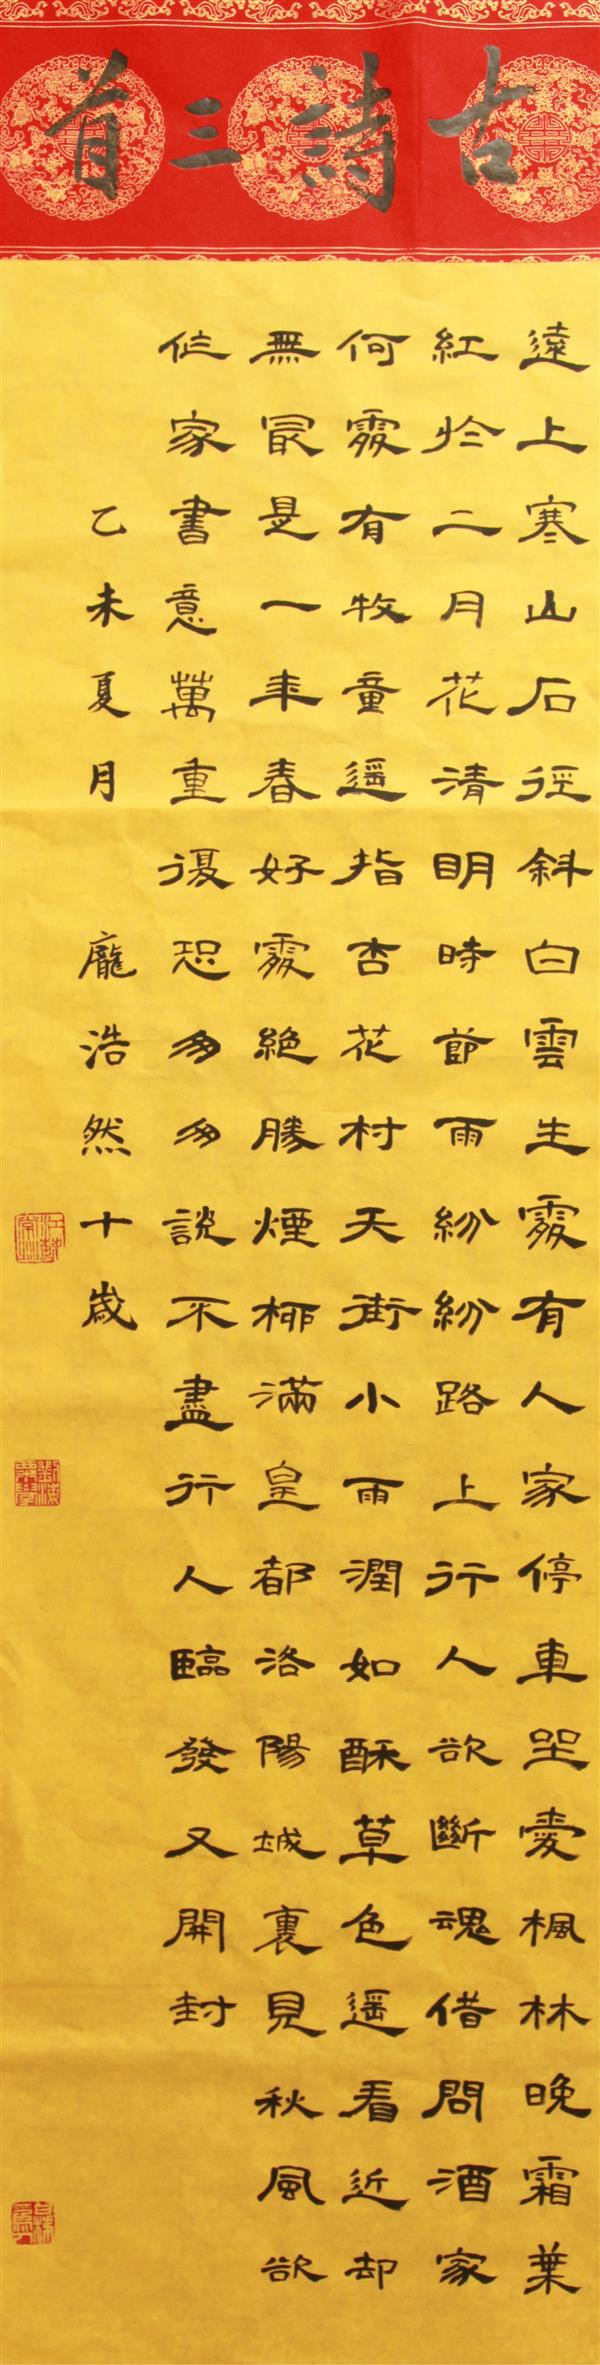 古詩三首
遠上寒山石徑斜白雲生處有人家停車坐愛楓林晚霜葉
紅於二月花清明時節雨紛紛路上行人欲斷魂借問酒家
何處有牧童遥指杏花村天街小雨潤如酥草色遥看近却
無最是一年春好處絶勝煙柳滿皇都洛陽城裏見秋風欲
作家書意萬重復恐匆匆説不盡行人臨發又開封
乙未夏月 龐浩然十歲